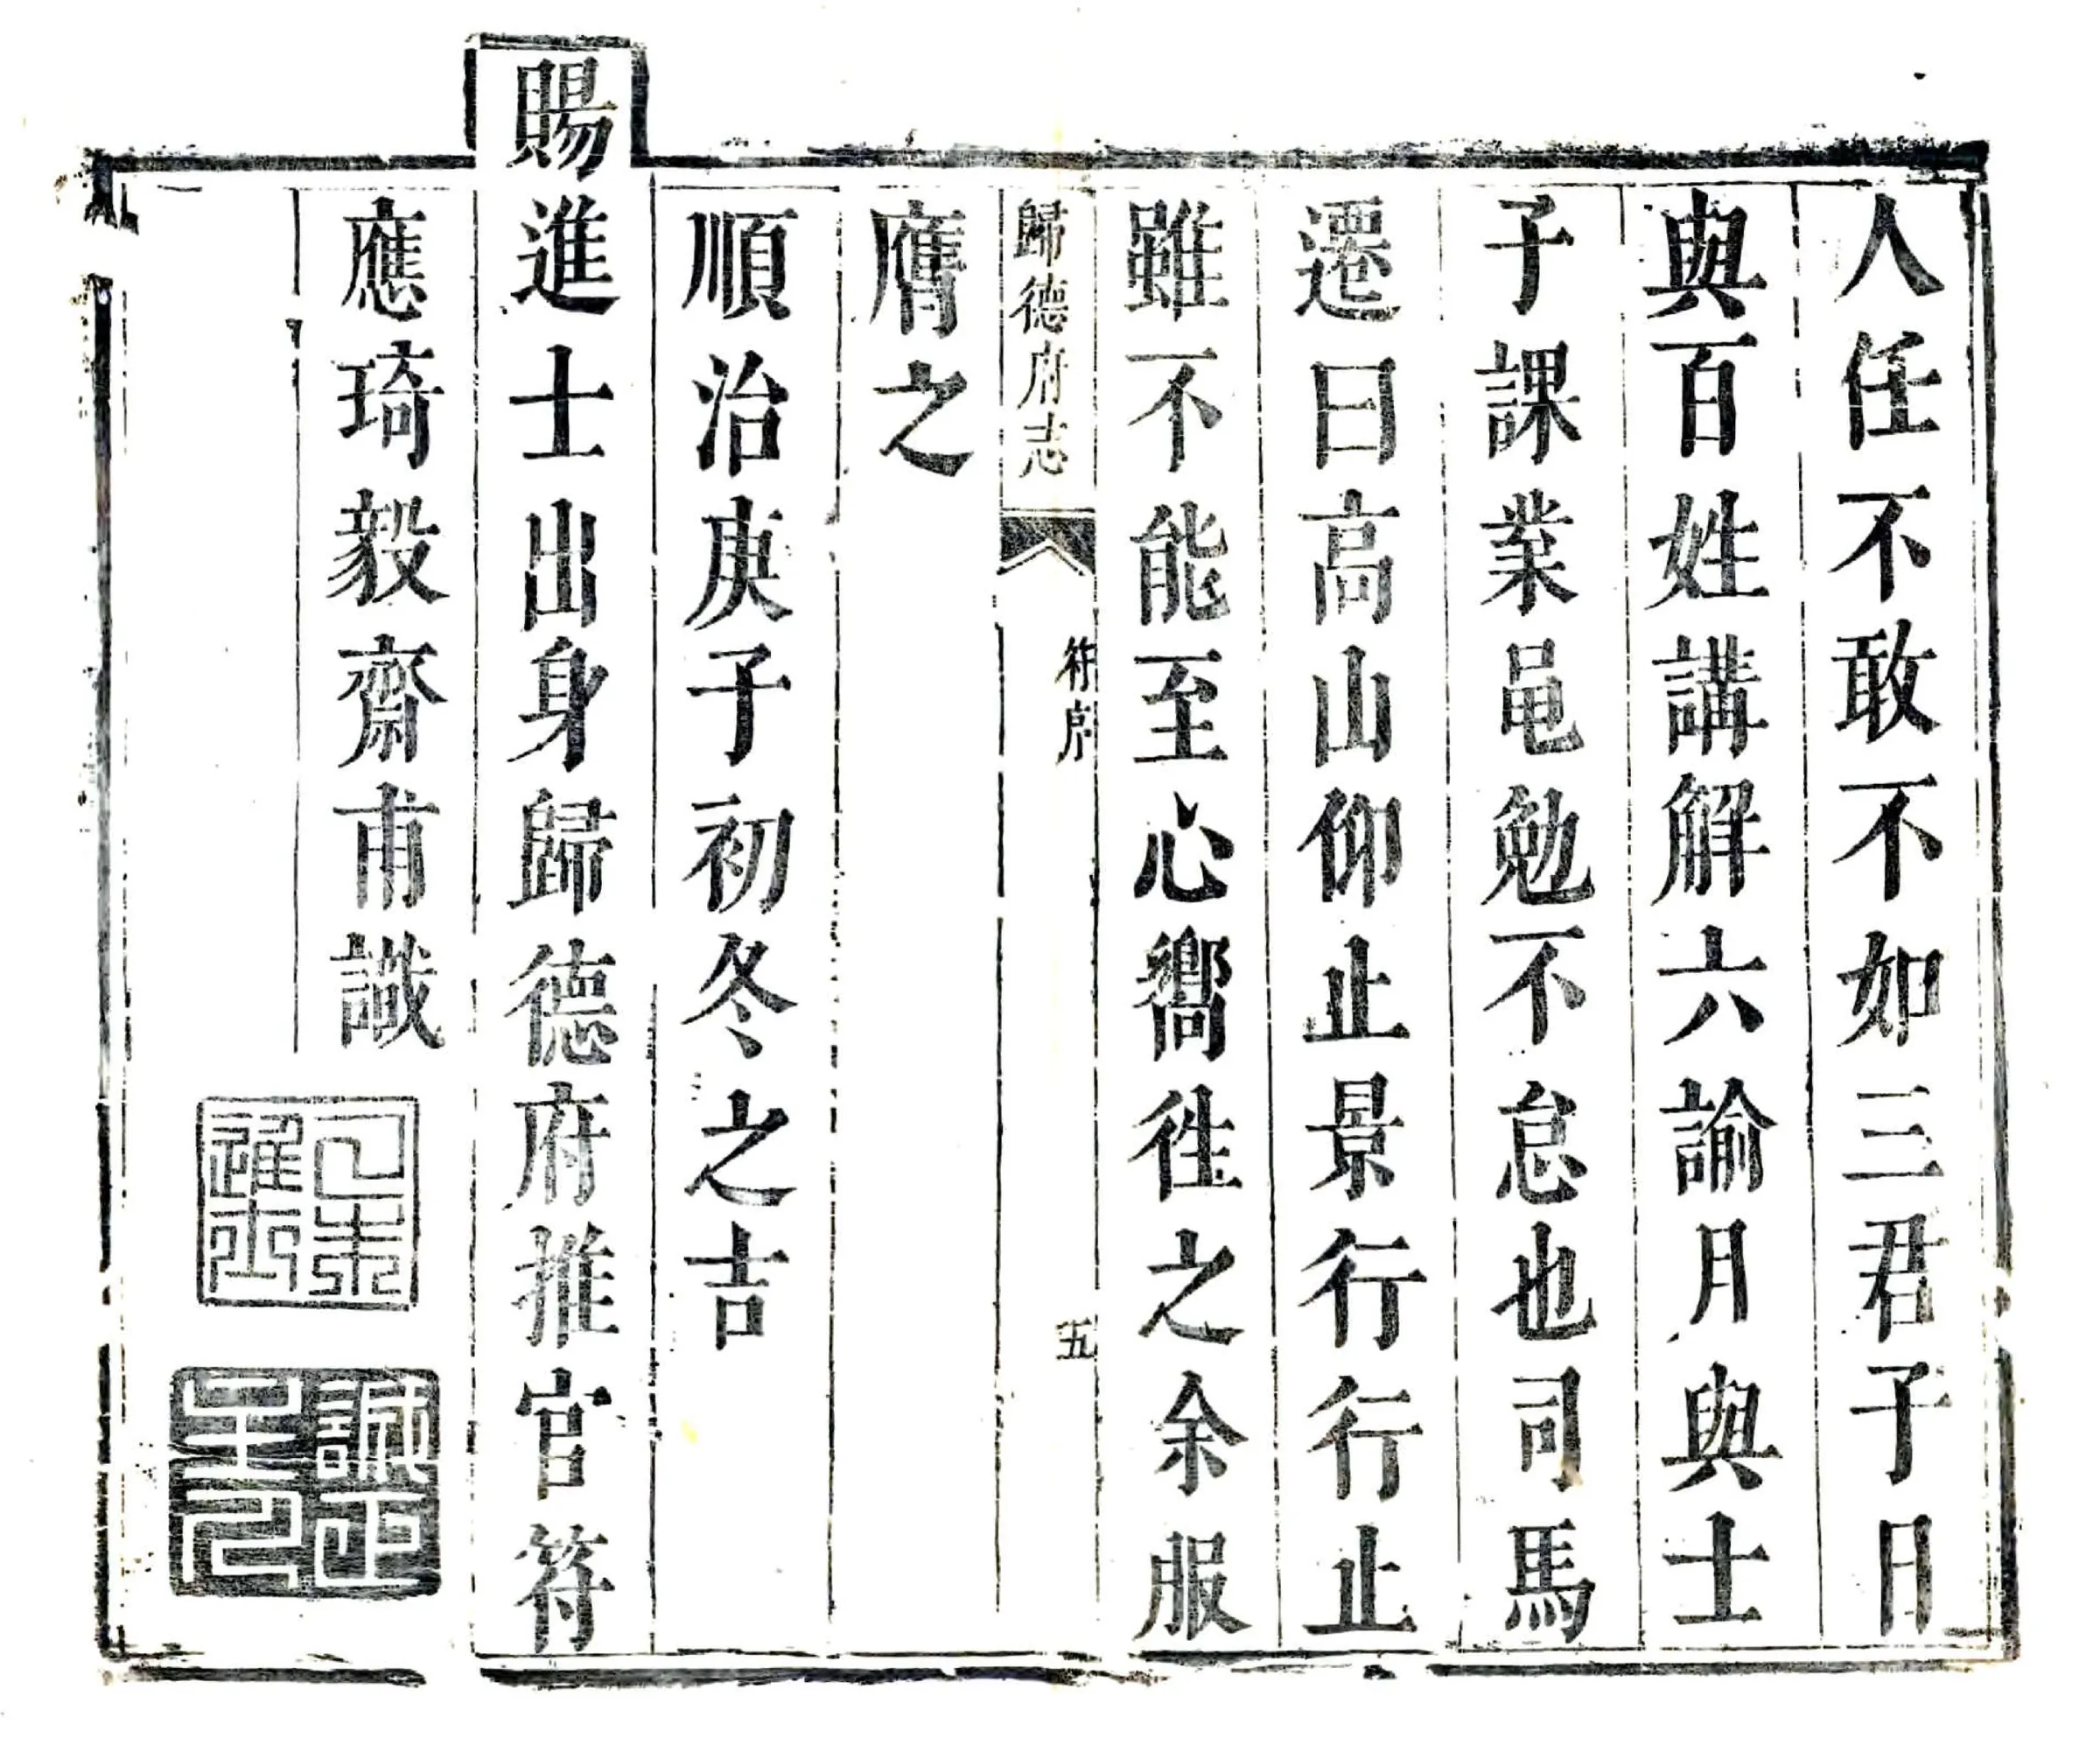 人任不敢不如三君子日
與百姓講解六諭月與士
子課業黾勉不怠也司馬
遷曰高山仰止景行行止
雖不能至心嚮徃之余服
歸德府志
符序
五
膺之
順治庚子初冬之吉
賜進士出身歸德府推官符
應琦毅齋甫識
乙未進士